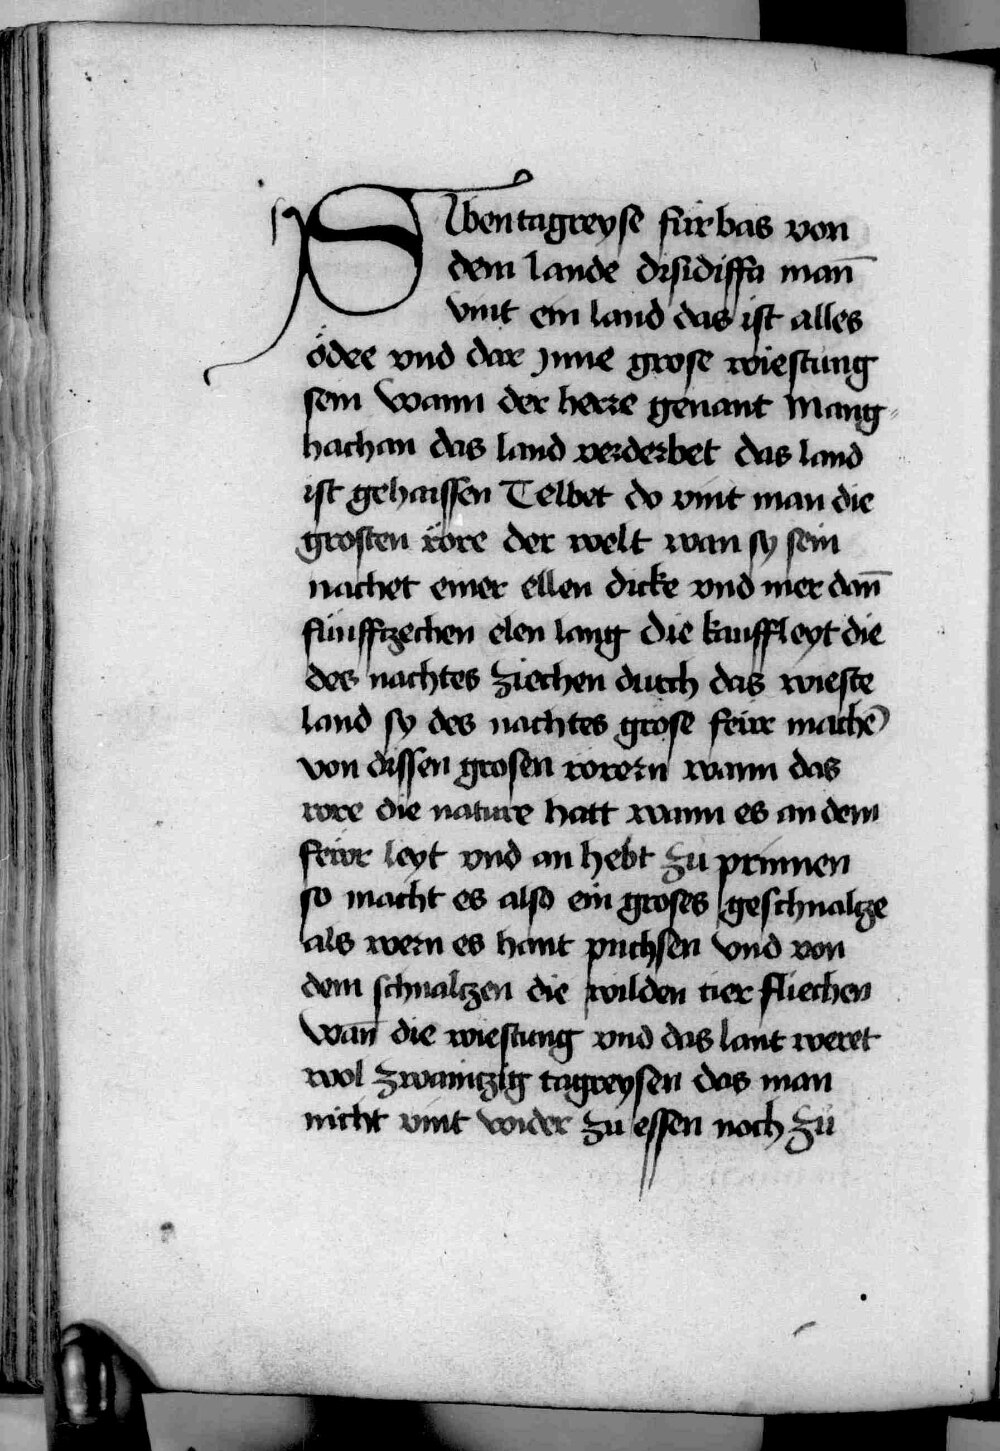 Siben tagreyse für bas von
dem lande disidiffa man̄
vint ein land das ist alles
ödee vnd dar jnne grose wiestung
sein wann der herre genant Mang-
hachan das land verderbet das land
ist gehaissen Telbet do vint man die
grosten röre der welt wan sy sein
nachet einer ellen dicke vnd mer dan̄
fünffzechen elen lang die kauffleyt die
des nachtes ziechen durch das wieste
land sy des nachtes grose feiwr machē
von dissen grosen rörern wann das
rore die nature hatt wann es an dem
feiwr leyt vnd an hebt zu prinnen
so macht es also ein groses geschnalcze
als wern es hant puchsen vnd von
dem schnalczen die wilden tier fliechen
wan̄ die wiestung vnd das lant weret
wol zwainczig tagreysen das man
nicht vint wider zu essen noch zu